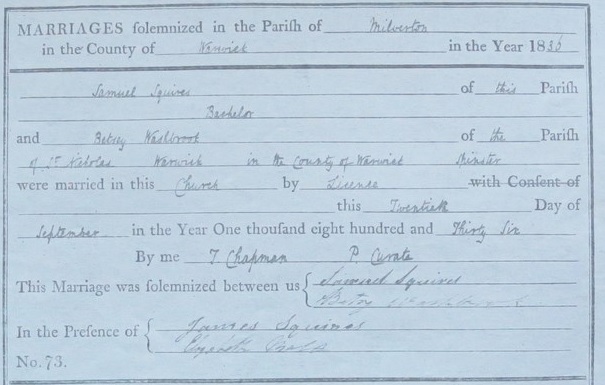 MARRIAGES solemnized in the Parish of Milverton
in the County of Warwick in the Year 1836
Samuel Squires of this Parish
Bachelor
and Betsey Washbrook of the Parish
of St Nicholas Warwick in the County of Warwick Spinster
were married in this Church by Licence with Consent of
this Twentieth Day of
September in the Year One thousand eight hundred and Thirty Six
By me T Chapman P. Curate
This Marriage was solemnized between us Samuel Squires
Betsy
In the Presence of James Squires
Elizabeth
No. 73.